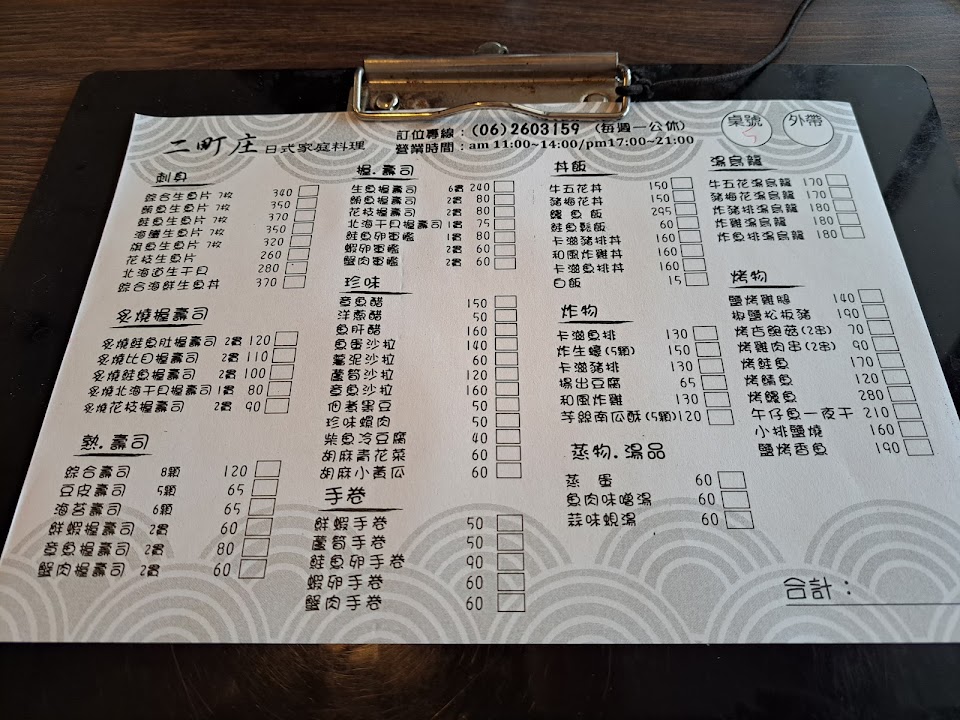 二町庄 日式家庭料理
訂位專線：(06)2603159 (每週一公休)
營業時間：am 11:00~14:00/pm17:00~21:00
桌號 5
外帶
刺身
綜合生魚片 7枚 340
鮪魚生魚片 7枚 350
鮭魚生魚片 7枚 370
海鱺生魚片 7枚 350
旗魚生魚片 7枚 320
花枝生魚片 260
北海道生干貝 280
綜合海鮮生魚丼 370
炙燒握壽司
炙燒鮭魚肚握壽司 2貫 120
炙燒比目握壽司 2貫 110
炙燒鮭魚握壽司 2貫 100
炙燒北海干貝握壽司 1貫 80
炙燒花枝握壽司 2貫 90
熱.壽司
綜合壽司 8顆 120
豆皮壽司 5顆 65
海苔壽司 6顆 65
鮮蝦握壽司 2貫 60
章魚握壽司 2貫 80
蟹肉握壽司 2貫 60
握.壽司
生魚握壽司 6貫 240
鮪魚握壽司 2貫 80
花枝握壽司 2貫 80
北海干貝握壽司 1貫 75
鮭魚卵軍艦 1貫 80
蝦卵軍艦 2貫 60
蟹肉軍艦 2貫 60
珍味
章魚醋 150
洋蔥醋 50
魚肝醋 160
魚蛋沙拉 140
薯泥沙拉 60
蘆筍沙拉 120
章魚沙拉 160
佃煮黑豆 50
珍味螺肉 50
柴魚冷豆腐 40
胡麻青花菜 60
胡麻小黃瓜 60
手卷
鮮蝦手卷 50
蘆筍手卷 50
鮭魚卵手卷 90
蝦卵手卷 60
蟹肉手卷 60
丼飯
牛五花丼 150
豬梅花丼 150
鰻魚飯 295
鮭魚鬆飯 60
卡滋豬排丼 160
和風炸雞丼 160
卡滋魚排丼 160
白飯 15
炸物
卡滋魚排 130
炸生蠔(5顆) 150
卡滋豬排 130
揚出豆腐 65
和風炸雞 130
芋絲南瓜酥(5顆)120
蒸物.湯品
蒸 蛋 60
魚肉味噌湯 60
蒜味蜆湯 60
湯烏龍
牛五花湯烏龍 170
豬梅花湯烏龍 170
炸豬排湯烏龍 180
炸雞湯烏龍 180
炸魚排湯烏龍 180
烤物
鹽烤雞腿 140
椒鹽松板豬 190
烤杏鮑菇(2串) 70
烤雞肉串(2串) 90
烤鮭魚 170
烤鯖魚 120
烤鰻魚 280
午仔魚一夜干 210
小排鹽燒 160
鹽烤香魚 190
合計：